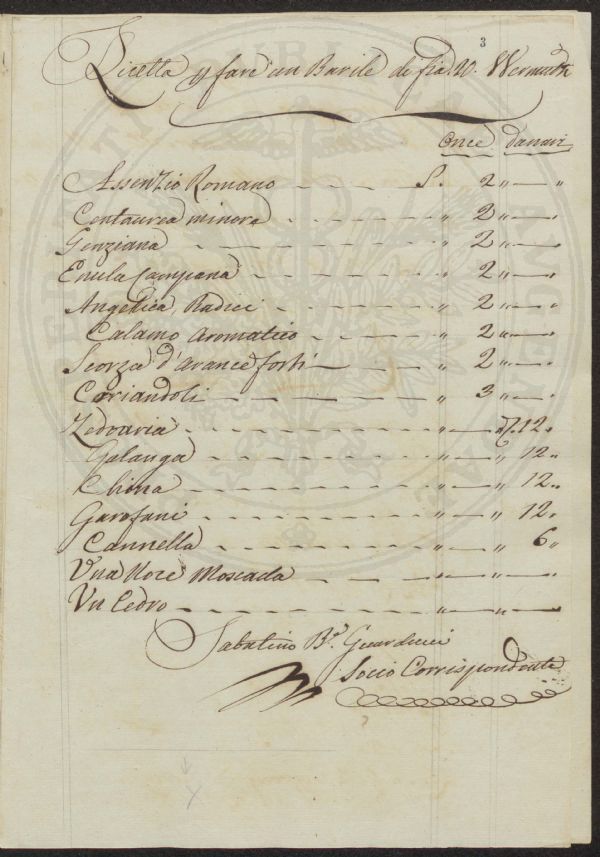 3
Ricetta p fare un Barile de fia. 20. Wermuth
Once danari
Assenzio Romano S. 2 " — "
Centaurea minore 2 " — "
Genziana " 2 " — "
Enula Campana " 2 " — "
Angelica, Radici " 2 " — "
Calamo Aromatico " 2 " — "
Scorza d'arance forti " 2 " — "
Coriandoli " 3 " — "
Zedoaria " — " 12 "
Galanga " — " 12 "
China " — " 12 "
Garofani " — " 12 "
Cannella " — " 6 "
Una Noce Moscada " — " — "
Un Cedro " — " — "
Sabatino B. Guarducci
Socio Corrispondente